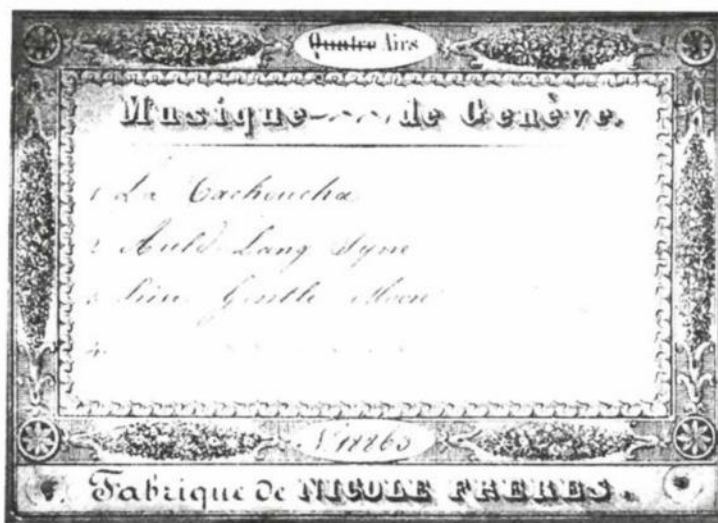 Quatre Airs
Musique de Genève.
1 La Cachoucha
2 Auld Lang Syne
3 Gentle Moon
4
Fabrique de NICOLE FRERES.